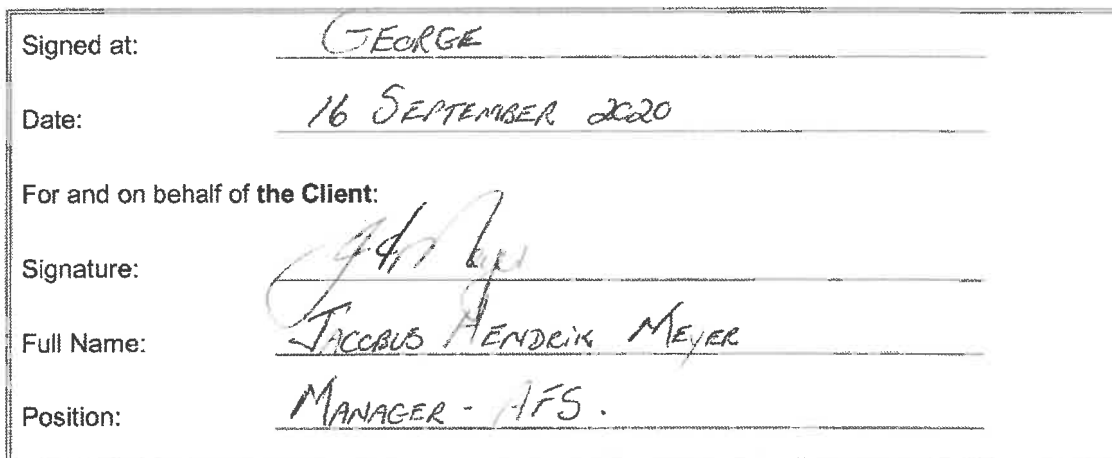 Signed at: GEORGE
Date: 16 SEPTEMBER 2020
For and on behalf of the Client:
Signature:
Full Name: JACOBUS HENDRIK MEYER
Position: MANAGER - AFS.